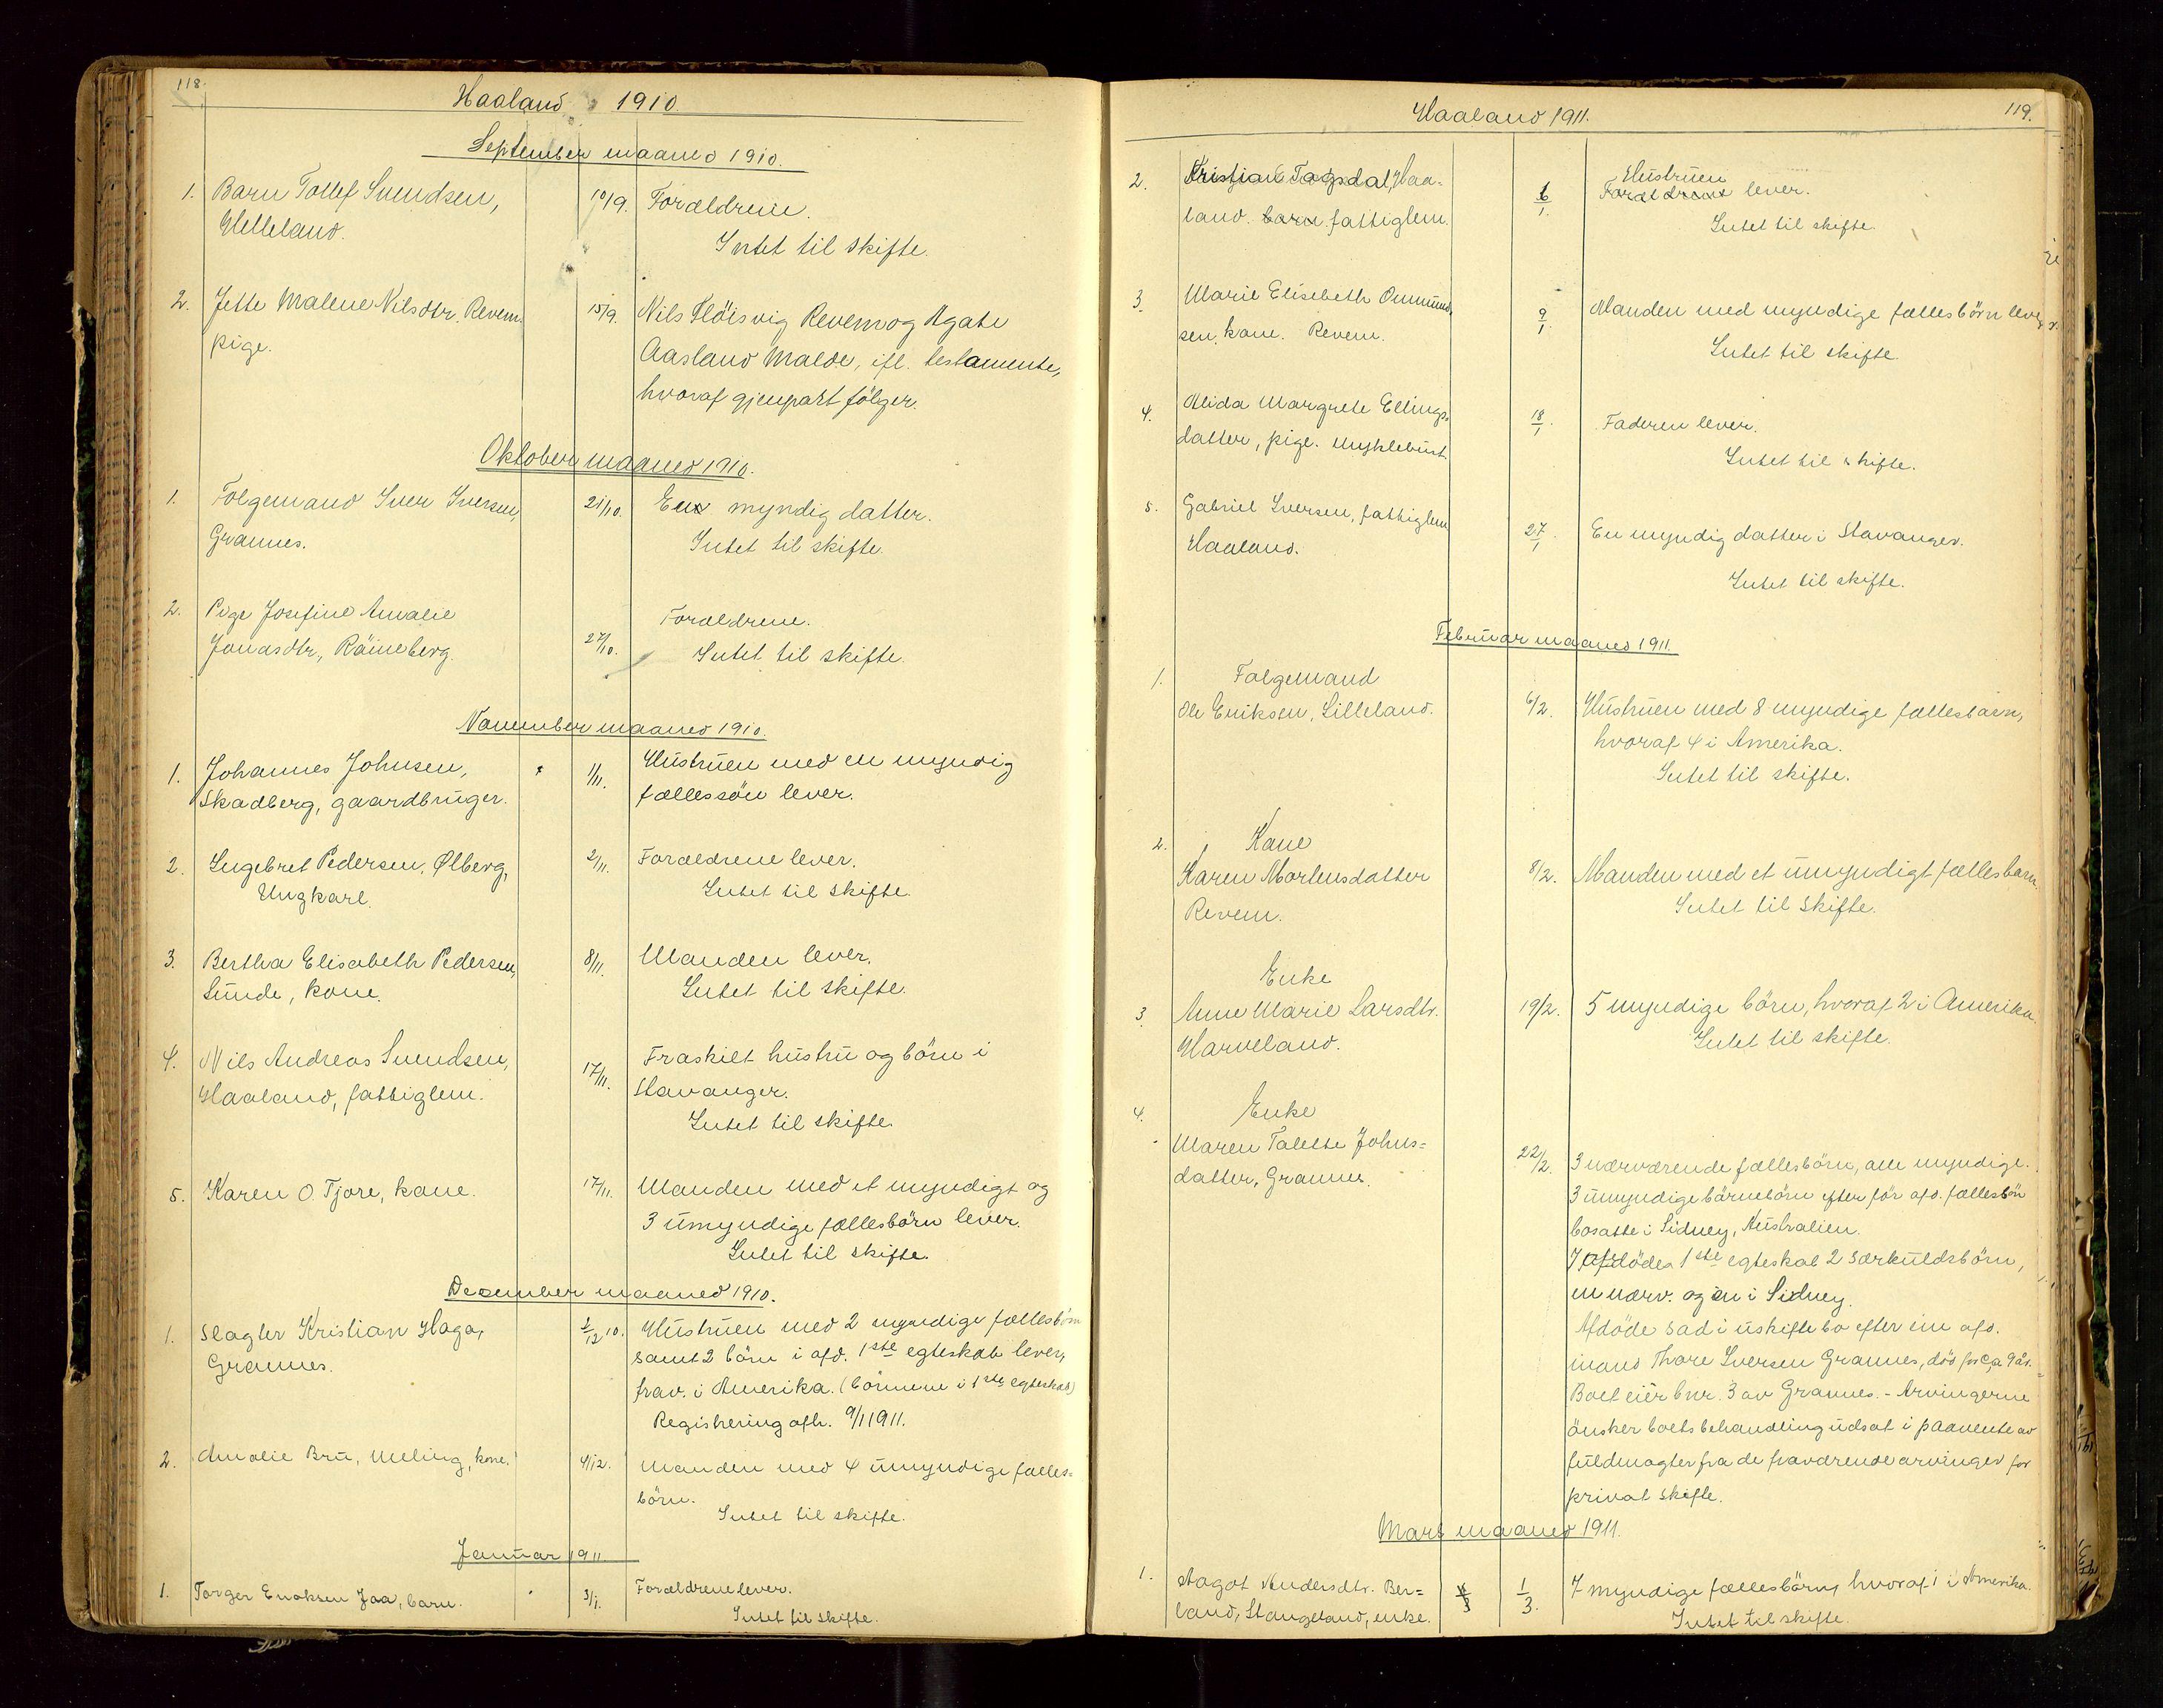 118.
Haaland 1910.
September maaned 1910.
1. Barn Tollef Svendsen, 10/9. Forældrene.
Helleland. Intet til skifte.
2. Jette Malene Nilsdtr. Revem. 15/9. Nils Flöisvig Revem og Agate
pige. Aasland Malde, ifl. testamente,
hvoraf gjenpart fölger.
Oktober maaned 1910.
1. Folgemand Iver Iversen, 21/10. En myndig datter.
Grannes. Intet til skifte.
2. Pige Josefine Amalie Forældrene.
Jonasdtr., Räineberg. 27/10. Intet til skifte.
November maaned 1910.
1. Johannes Johnsen, 1/11. Hustruen med en myndig
Skadberg, gaardbruger. fællessön lever.
2. Ingebret Pedersen, Ølberg, 2/11. Forældrene lever.
Ungkarl. Intet til skifte.
3. Bertha Elisabeth Pedersen, 8/11. Manden lever.
Sunde, kone. Intet til skifte.
4. Nils Andreas Svendsen, 17/11. Fraskilt hustru og börn i
Haaland, fattiglem. Stavanger.
Intet til skifte.
5. Karen O. Tjore, kone. 17/11. Manden med et myndigt og
3 umyndige fællesbörn lever.
Intet til skifte.
Desember maaned 1910.
1. Slagter Kristian Haga, 1/12 10. Hustruen med 2 myndige fællesbörn
Grannes. samt 2 börn i afd. 1ste egteskab lever,
frav. i Amerika. (börnene i 1ste egteskab)
Registrering afh. 9/1 1911.
2. Amalie Bru, Meling, kone. 4/12. Manden med 4 umyndige fælles-
börn.
Intet til skifte.
Januar 1911.
1. Torger Enoksen Jaa, barn. 3/1. Forældrene lever.
Intet til skifte.
Haaland 1911. 119.
2. Kristian Tagsdal, Haa- 6/1. Hustruen
Forældrene lever.
land. barn. fattiglem. Intet til skifte.
3. Marie Elisebeth Ommund- 9/1. Manden med myndige fællesbörn lever.
sen, kone. Revem. Intet til skifte.
4. Alida Margrete Ellings- 18/1. Faderen lever.
datter, pige. Myklebust. Intet til skifte.
5. Gabriel Iversen, fattiglem 27/1. En myndig datter i Stavanger.
Haaland. Intet til skifte.
Februar maaned 1911.
1. Folgemand
Ole Eriksen, Lilleland. 6/2. Hustruen med 8 myndige fællesbarn,
hvoraf 4 i Amerika.
Intet til skifte.
2. Kone
Karen Mortensdatter 8/2. Manden med et umyndigt fællesbarn.
Revem. Intet til skifte.
Enke
3. Anne Marie Larsdtr. 19/2. 5 myndige börn, hvoraf 2 i Amerika.
Harveland. Intet til skifte.
4. Enke
Maren Talette Johns- 22/2. 3 nærværende fællesbörn, alle myndige.
datter, Grannes. 3 umyndige börnebörn efter för afd. fællesbön
bosatte i Sidney, Australien.
I afdödes 1ste egteskab 2 særkuldsbörn,
en nærv. og én i Sidney.
Afdöde sad i uskifte bo efter sin afd.
mand Thore Iversen Grannes, död for ca 9 år.
Boet eier bnr. 3 av Grannes. - Arvingerne
önsker boets behandling udsat i paavente av
fuldmagter fra de fraværende arvinger for
privat skifte.
Mars maaned 1911.
1. Aagot Andersdtr. Ber- 1/3. 7 myndige fællesbörn, hvoraf 1 i Amerika.
land, Stangeland, enke. Intet til skifte.